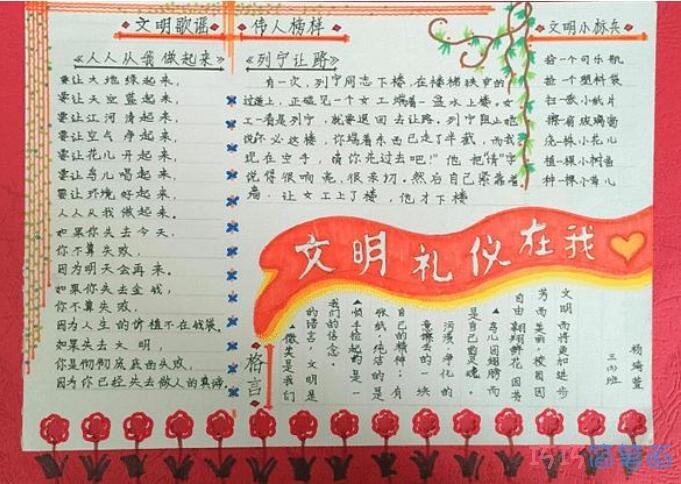 文明歌谣
《人人从我做起来》
要让大地绿起来,
要让天空蓝起来,
要让江河清起来,
要让空气净起来,
要让花儿开起来,
要让鸟儿唱起来,
要让环境好起来,
人人从我做起来。
如果你失去今天,
你不算失败,
因为明天会再来。
如果你失去金钱,
你不算失败,
因为人生的价值不在钱袋。
如果失去文明,
你是彻彻底底的失败,
因为你已经失去做人的真谛。
伟人榜样
《列宁让路》
有一次,列宁同志下楼,在楼梯狭窄的
过道上,正碰见一个女工端着一盆水上楼。女
工一看是列宁,就要退回去让路。列宁阻止她
说不必这楼,你端着东西已走了半截,而我
现在空手,请你先过去吧!"他把"请"字
说得很响亮,很亲切。然后自己紧靠着
墙,让女工上了楼,他才下楼
文明小标兵
捡一个可乐瓶
捡一个塑料袋
扫一教小纸片
擦肩玻璃窗
浇一株小花儿
植一棵小树苗
种一棵小草儿
文明礼仪在我
格言
文明而将更和进步
芳而美丽,校园因
自由翱翔鲜花因芳
▲鸟儿因翅膀而
是自己的灵魂。
污渍,净化的
意擦去的一块
自己的精神;有
张纸,纯洁的是
▲顺手拾起的是一
我们的信念。
的语言,文明是
▲微笑是我们
三(4)班
巧巧简笔画